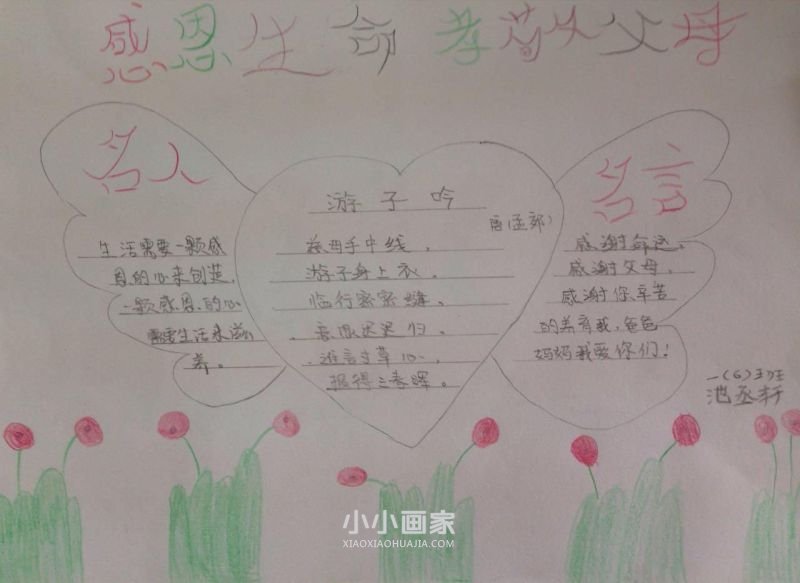 感恩生命 孝敬父母
名人
生活需要一颗感
恩的心来创造,
一颗感恩的心
需要生活来滋
养。
游子吟
唐(孟郊)
慈母手中线,
游子身上衣。
临行密密缝,
意恐迟迟归。
谁言寸草心,
报得三春晖。
名言
感谢命运,
感谢父母,
感谢你辛苦
的养育我,爸爸
妈妈我爱你们!
一(6)班
池丞轩
小小画家
XIAOXIAOHUAJIA.COM